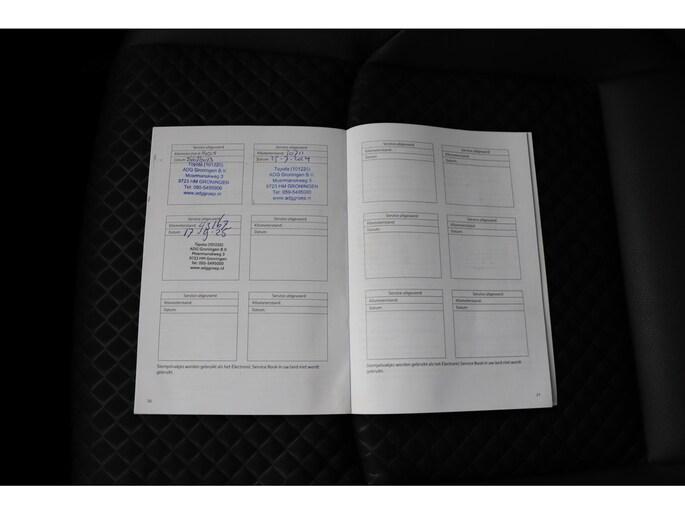 Service uitgevoerd
Kilometerstand:
Datum:
Toyota (101220)
ADG Groningen B.V.
Muermansweg 3
9723 HM GRONINGEN
Tel: 050-5495000
www.adggroep.nl
Service uitgevoerd
Kilometerstand:
Datum:
Toyota (101220)
ADG Groningen B.V.
Muermansweg 3
9723 HM GRONINGEN
Tel: 050-5495000
www.adggroep.nl
Service uitgevoerd
Kilometerstand: 43167
Datum: 17-9-25
Toyota (101220)
ADG Groningen B.V.
Muermansweg 3
9723 HM GRONINGEN
Tel: 050-5495000
www.adggroep.nl
Service uitgevoerd
Kilometerstand:
Datum:
Service uitgevoerd
Kilometerstand:
Datum:
Service uitgevoerd
Kilometerstand:
Datum:
Stempelvakjes worden gebruikt als het Electronic Service Book in uw land niet wordt
gebruikt.
Service uitgevoerd
Kilometerstand:
Datum:
Service uitgevoerd
Kilometerstand:
Datum:
Service uitgevoerd
Kilometerstand:
Datum:
Service uitgevoerd
Kilometerstand:
Datum:
Service uitgevoerd
Kilometerstand:
Datum:
Service uitgevoerd
Kilometerstand:
Datum:
Stempelvakjes worden gebruikt als het Electronic Service Book in uw land niet wordt
gebruikt.